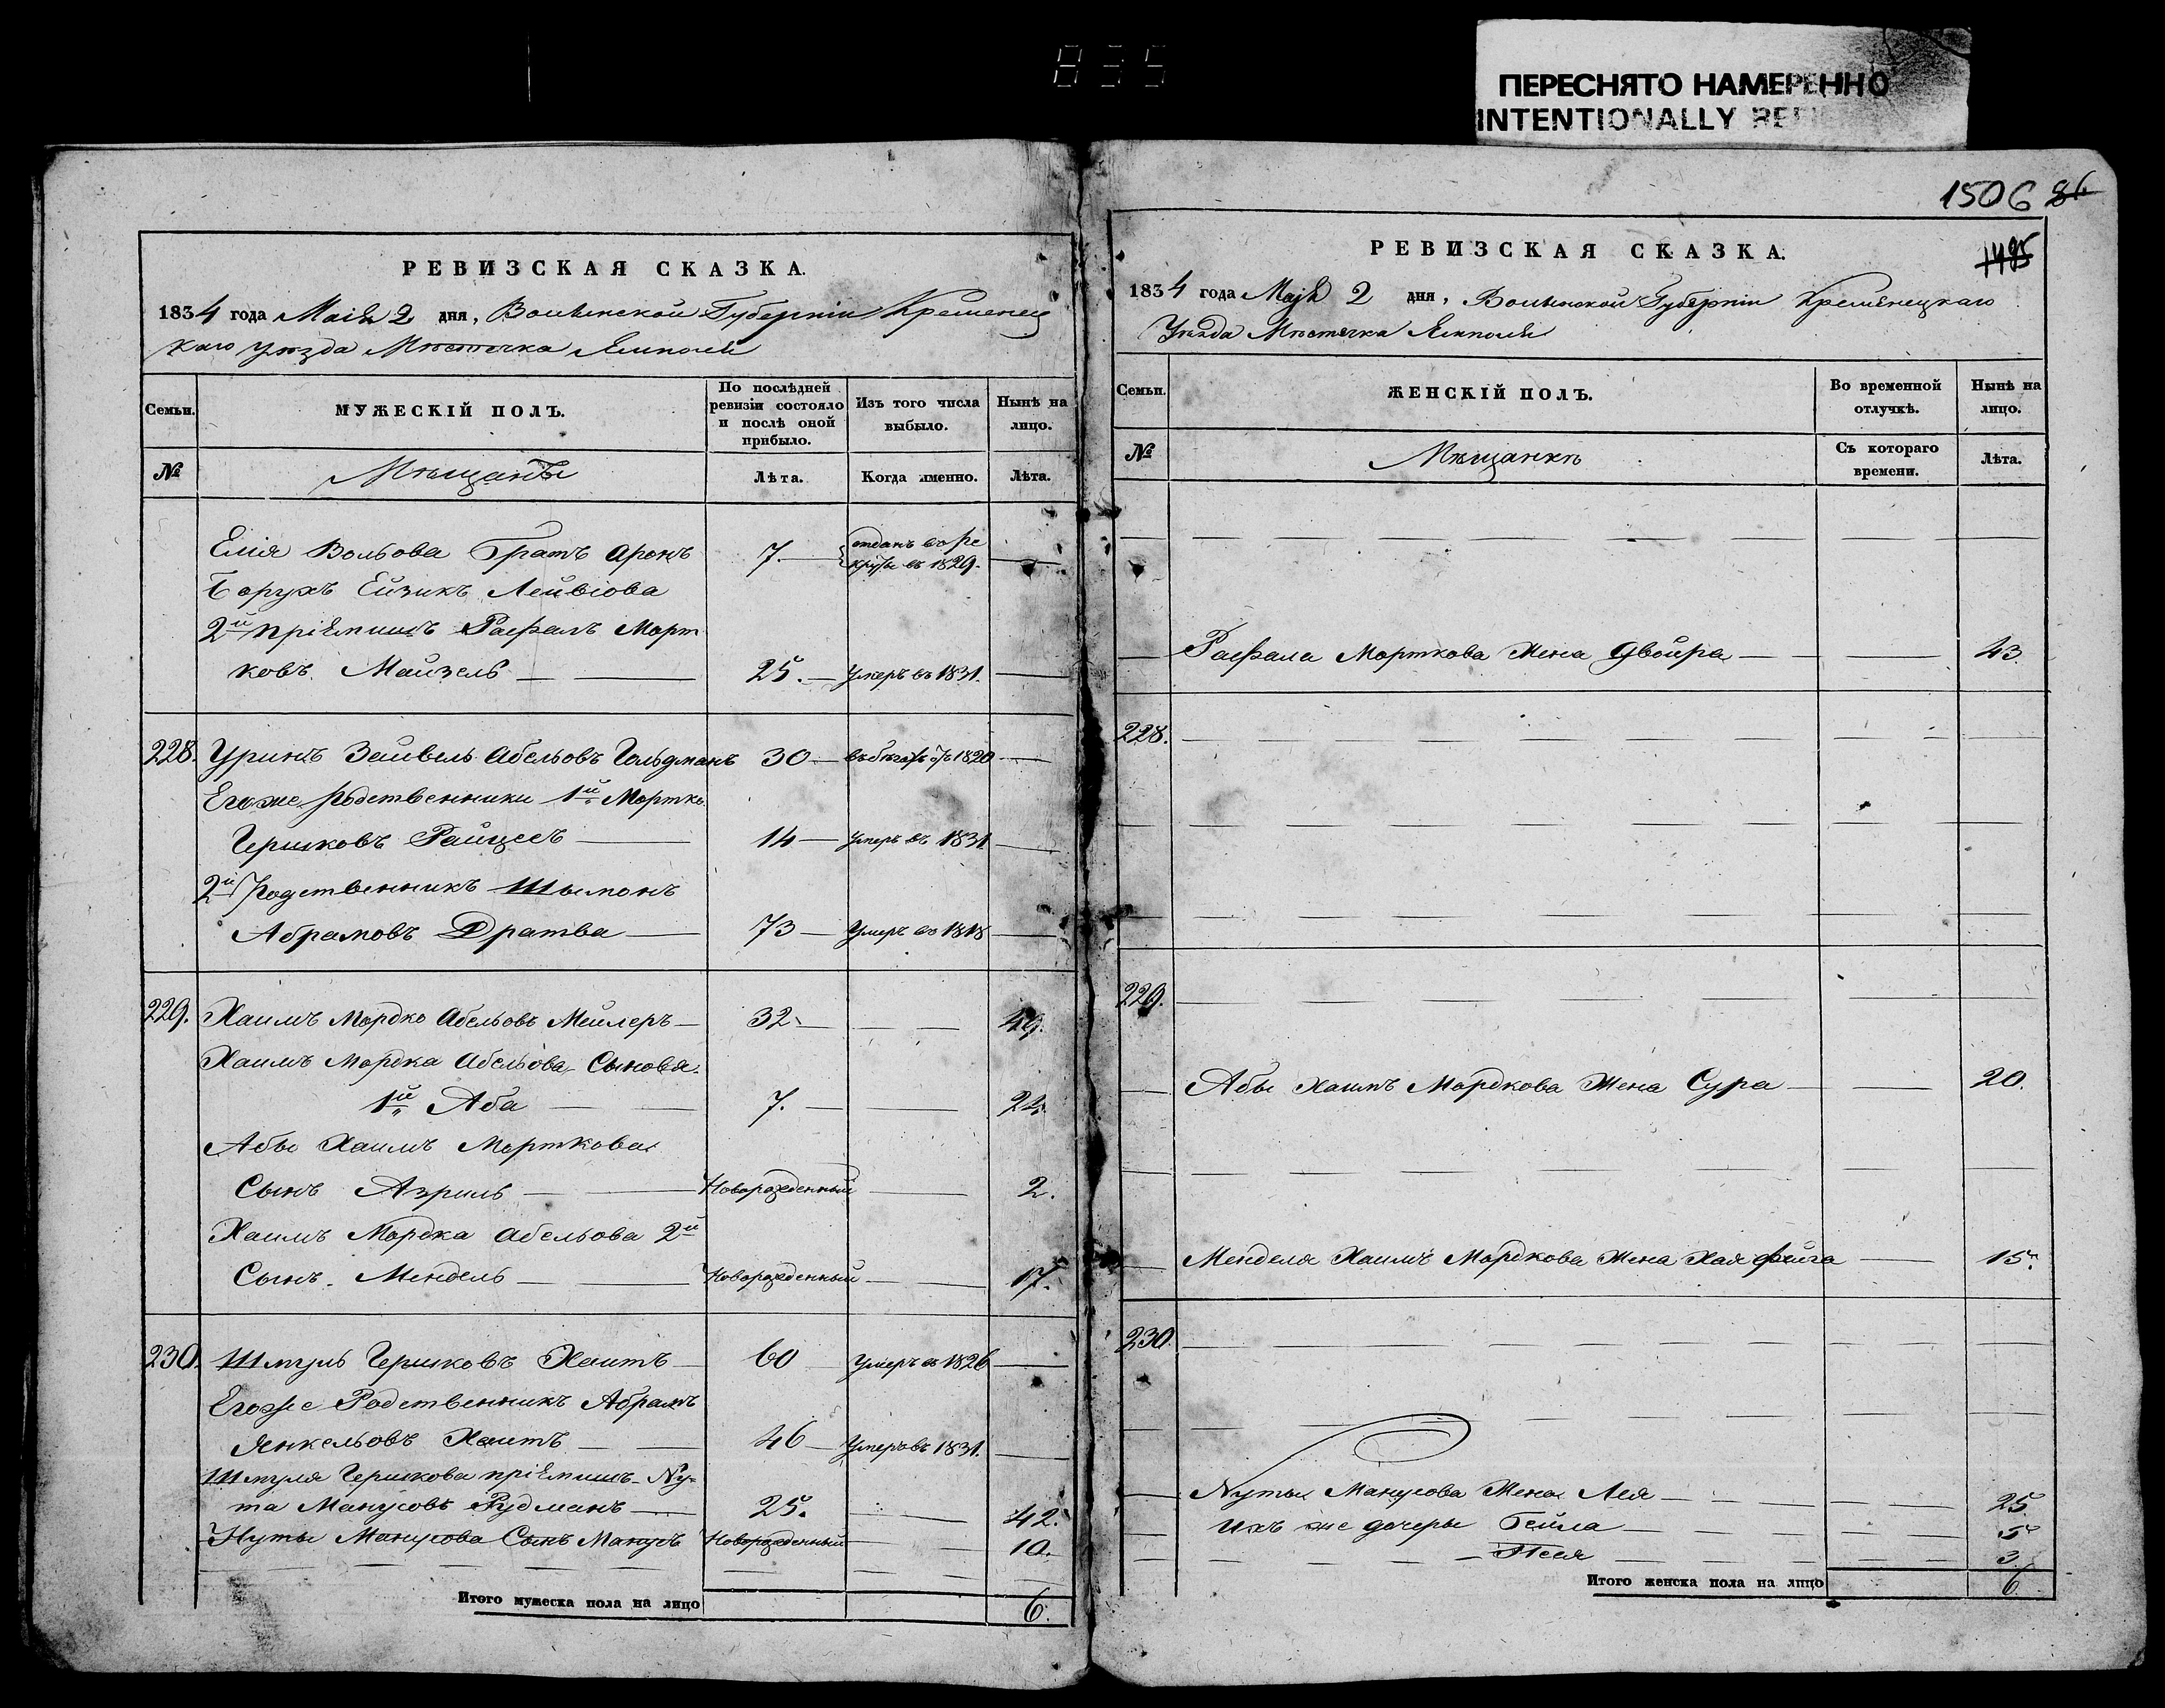 835
ПЕРЕСНЯТО НАМЕРЕННО
INTENTIONALLY
1506 86
1485
РЕВИЗСКАЯ СКАЗКА.
1834 года Маія 2 дня, Волынской Губерніи Кременец
каго уѣзда Мѣстечка Ямполя
Семьи. МУЖЕСКІЙ ПОЛЪ. По послѣдней ревизіи состояло и послѣ оной прибыло. Изъ того числа выбыло. Нынѣ на лицо.
№ Мѣщанъ Лѣта. Когда именно. Лѣта.
Елія Вольова Братъ Аронъ 7. отданъ во ре
круты въ 1829.
Борухъ Ейзикъ Лейвіова
2й пріемишъ Рафалъ Морт
ковъ Майзель 25. Умеръ въ 1831.
228. Уринъ Зейвель Абельовъ Гольдманъ 30 въ бѣгахъ съ 1820
Егоже родственники 1й Мортко
Гершковъ Райцесъ 14 Умеръ въ 1831
2й Родственникъ Шымонъ
Абрамовъ Дратва 73 Умеръ во 1818
229. Хаимъ Мордко Абельовъ Мейлеръ 32 49.
Хаимъ Мордка Абельова Сыновя
1й Аба 7. 24.
Абы Хаимъ Морткова
Сынъ Азриль Новорожденный 2.
Хаимъ Мордка Абельова 2й
Сынъ Мендель Новорожденный 17.
230. Шмуль Гершковъ Хаитъ 60 Умеръ въ 1826
Егоже Родственникъ Абрамъ
Янкельовъ Хаитъ 46 Умеръ въ 1831.
Шмуля Гершкова пріемишъ Ну
та Манусовъ Рудманъ 25. 42.
Нуты Манусова Сынъ Манусъ Новорожденный 10.
Итого мужеска пола на лицо 6.
РЕВИЗСКАЯ СКАЗКА.
1834 года Маія 2 дня, Волынской Губерніи Кременецкаго
Уѣзда Мѣстечка Ямполя
Семьи. ЖЕНСКІЙ ПОЛЪ. Во временной отлучкѣ. Нынѣ на лицо.
№ Мѣщанкъ Съ котораго времени. Лѣта.
Рафала Морткова Жена Двойра 43.
228.
229.
Абы Хаимъ Мордкова Жена Сура 20.
Менделя Хаимъ Мордкова Жена Хая Фейга 15.
230.
Нуты Манусова Жена Лея 25
Ихъ же дочеры Бейла 5
Песя 3.
Итого женска пола на лицо 6